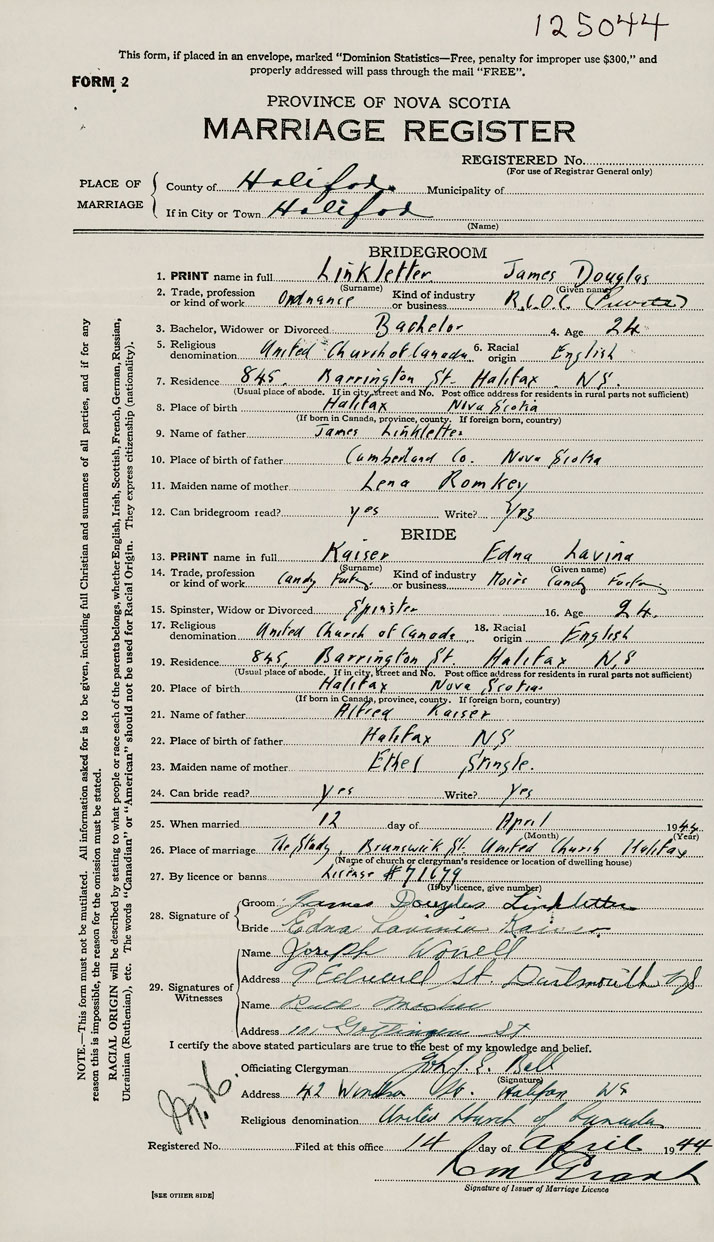 125044
This form, if placed in an envelope, marked "Dominion Statistics—Free, penalty for improper use $300," and
properly addressed will pass through the mail "FREE".
FORM 2
PROVINCE OF NOVA SCOTIA
MARRIAGE REGISTER
REGISTERED No.
(For use of Registrar General only)
PLACE OF MARRIAGE
County of Halifax Municipality of
If in City or Town Halifax
(Name)
BRIDEGROOM
1. PRINT name in full Linkletter James Douglas
(Surname) (Given name)
2. Trade, profession or kind of work Ordnance Kind of industry or business R.C.O.C. (Private)
3. Bachelor, Widower or Divorced Bachelor 4. Age 24
5. Religious denomination United Church of Canada 6. Racial origin English
7. Residence 845 Barrington St. Halifax N.S.
(Usual place of abode. If in city, street and No. Post office address for residents in rural parts not sufficient)
8. Place of birth Halifax Nova Scotia
(If born in Canada, province, county. If foreign born, country)
9. Name of father James Linkletter
10. Place of birth of father Cumberland Co. Nova Scotia
11. Maiden name of mother Lena Romkey
12. Can bridegroom read? yes Write? yes
BRIDE
13. PRINT name in full Kaiser Edna Lavina
(Surname) (Given name)
14. Trade, profession or kind of work Candy Kind of industry or business Moirs Candy
15. Spinster, Widow or Divorced Spinster 16. Age 24
17. Religious denomination United Church of Canada 18. Racial origin English
19. Residence 845, Barrington St. Halifax N.S
(Usual place of abode. If in city, street and No. Post office address for residents in rural parts not sufficient)
20. Place of birth Halifax Nova Scotia
(If born in Canada, province, county. If foreign born, country)
21. Name of father Alfred Kaiser
22. Place of birth of father Halifax NS
23. Maiden name of mother Ethel Stingle.
24. Can bride read? yes Write? yes
25. When married 12 day of April 1944
(Month) (Year)
26. Place of marriage The Study, Brunswick St. United Church Halifax
(Name of church or clergyman's residence or location of dwelling house)
27. By licence or banns License #71679
(If by licence, give number)
28. Signature of
Groom James Douglas Linkletter
Bride Edna Lavinia Kaiser
29. Signatures of Witnesses
Name Joseph
Address 9 Edward St Dartmouth NS
Name
Address Gottingen St
I certify the above stated particulars are true to the best of my knowledge and belief.
Officiating Clergyman John J. E. Ball
(Signature)
Address 42 Windsor St. Halifax NS
Religious denomination United Church of Canada
Registered No. Filed at this office 14 day of April 1944
Grant
Signature of Issuer of Marriage Licence
[SEE OTHER SIDE]
NOTE.—This form must not be mutilated. All information asked for is to be given, including full Christian and surnames of all parties, and if for any
reason this is impossible, the reason for the omission must be stated.
RACIAL ORIGIN will be described by stating to what people or race each of the parents belongs, whether English, Irish, Scottish, French, German, Russian,
Ukrainian (Ruthenian), etc. The words "Canadian" or "American" should not be used for Racial Origin. They express citizenship (nationality).